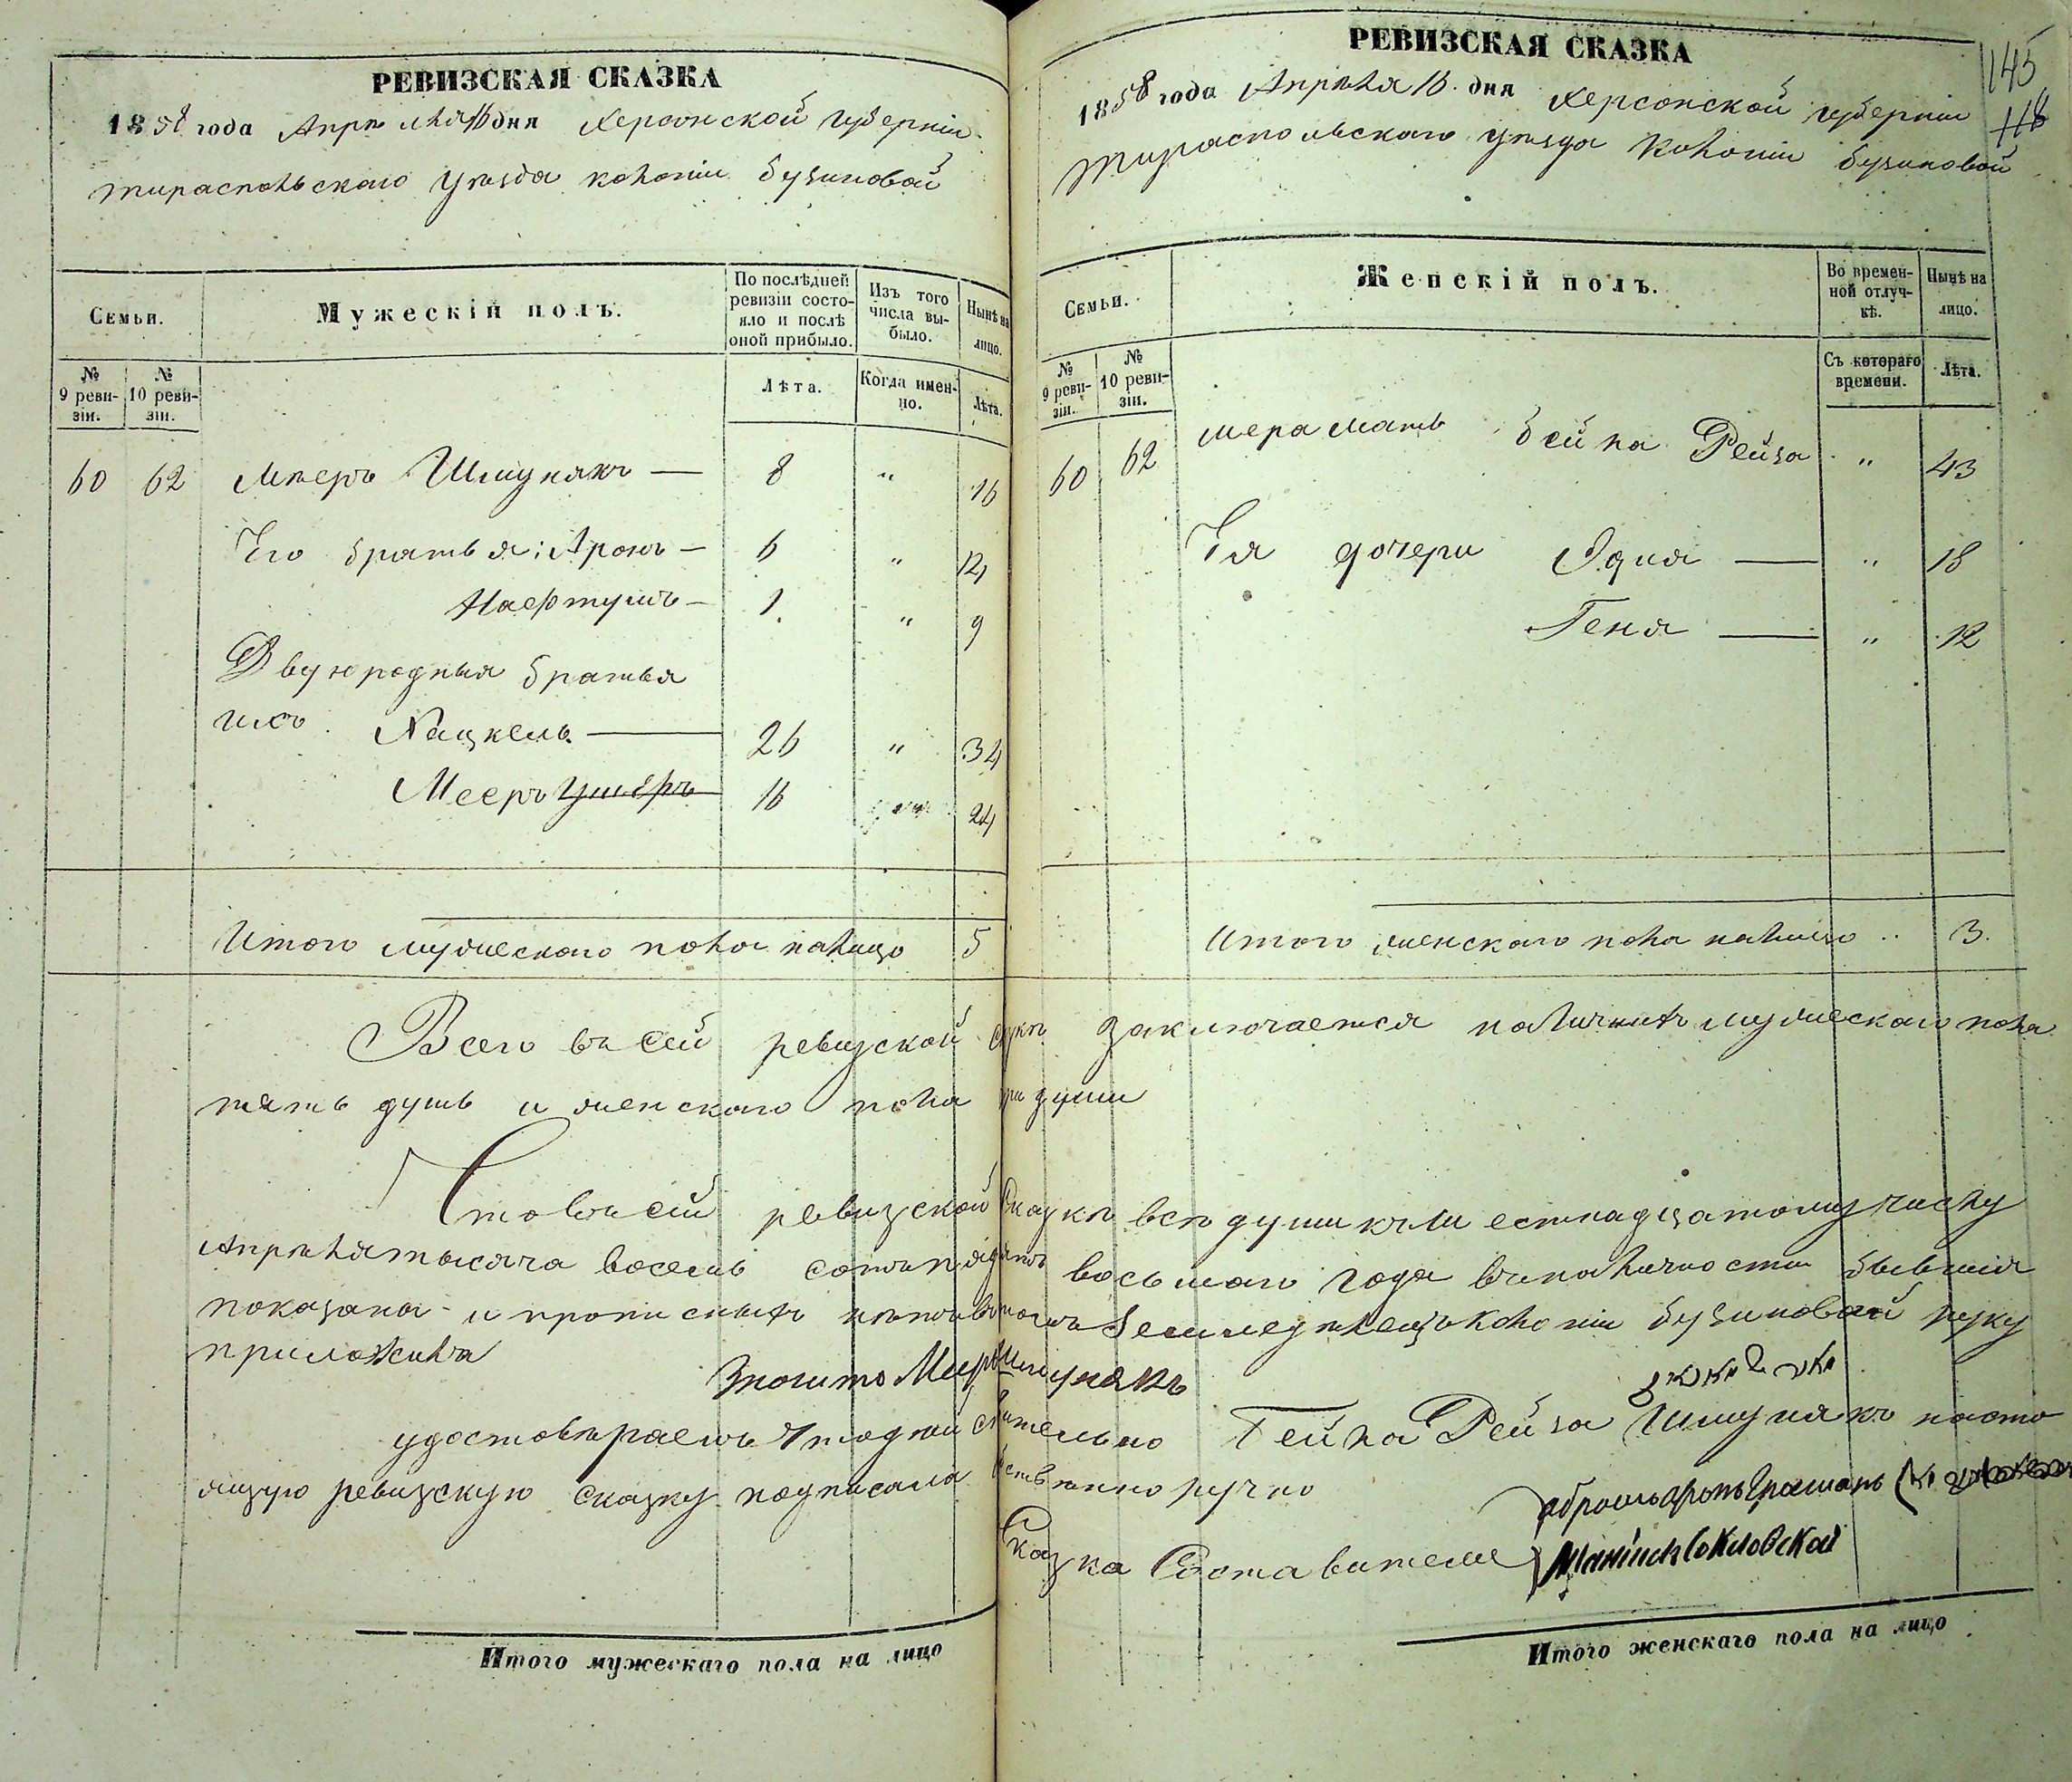 РЕВИЗСКАЯ СКАЗКА
1858 года Апрѣля 16 дня Херсонской губерніи
тираспольскаго уѣзда колоніи бузиновой
Семьи.
Мужескій полъ.
По послѣдней ревизіи состояло и послѣ оной прибыло.
Изъ того числа выбыло.
Нынѣ на лицо.
№ 9 ревизіи.
№ 10 ревизіи.
Лѣта.
Когда именно.
Лѣта.
60 62 Мееръ Шмунякъ — 8 " 16
Его братья: Аронъ — 6 " 14
Нафтула — 1 " 9
Двуюродныя братья
ихъ Хацкель — 26 " 34
Мееръ 16 24
Итого мужескаго пола налицо 5
РЕВИЗСКАЯ СКАЗКА
145
118
1858 года Апрѣля 16 дня Херсонской губерніи
тираспольскаго уѣзда колоніи бузиновой
Семьи.
Женскій полъ.
Во временной отлучкѣ.
Нынѣ на лицо.
№ 9 ревизіи.
№ 10 ревизіи.
Съ котораго времени.
Лѣта.
60 62 мера мать бейла Рейза " 43
Ея дочери Эдия — " 18
Геня — " 12
Итого женскаго пола налицо .. 3.
Всего въ сей ревизской скаскѣ заключается наличныхъ мужескаго пола
пять душъ и женскаго пола три души
Что въ сей ревизской сказкѣ всѣ души къ шестнадцатому числу
Апрѣля тысяча восемь сотъ пятьдесятъ восьмаго года въ наличности бывшія
показаны и прописныхъ нѣтъ въ томъ земледѣлецъ колоніи бузиновой руку
приложилъ
Мееръ Шмунякъ
удостовѣряемъ что дѣйствительно Бейла Рейза Шмунякъ насто
ящую ревизскую сказку подписала собственноручно
Сказка Составители